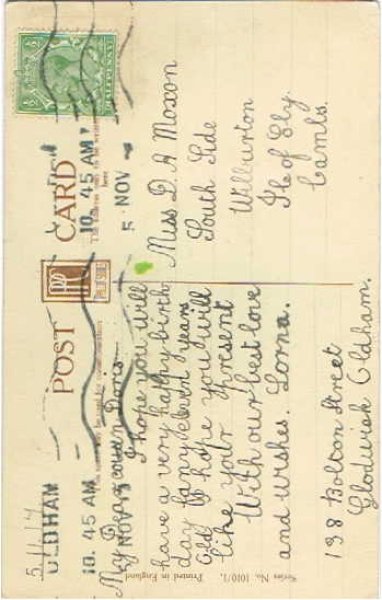 5.11.14
OLDHAM
10. 45 AM
5 NOV
10. 45 AM
5 NOV
HALFPENNY
POST CARD
here
My Dear cousen Doris
I hope you will
have a very happy birth
day fancy eleven years
old I hope you will
like your present
With our best love
and wishes. Lorna.
138 Bolton Street
Glodwick Oldham.
Miss D. A Moxon
South Side
Wilburton
Ile of Ely
Cambs.
Series No. 1010/1. Printed in England